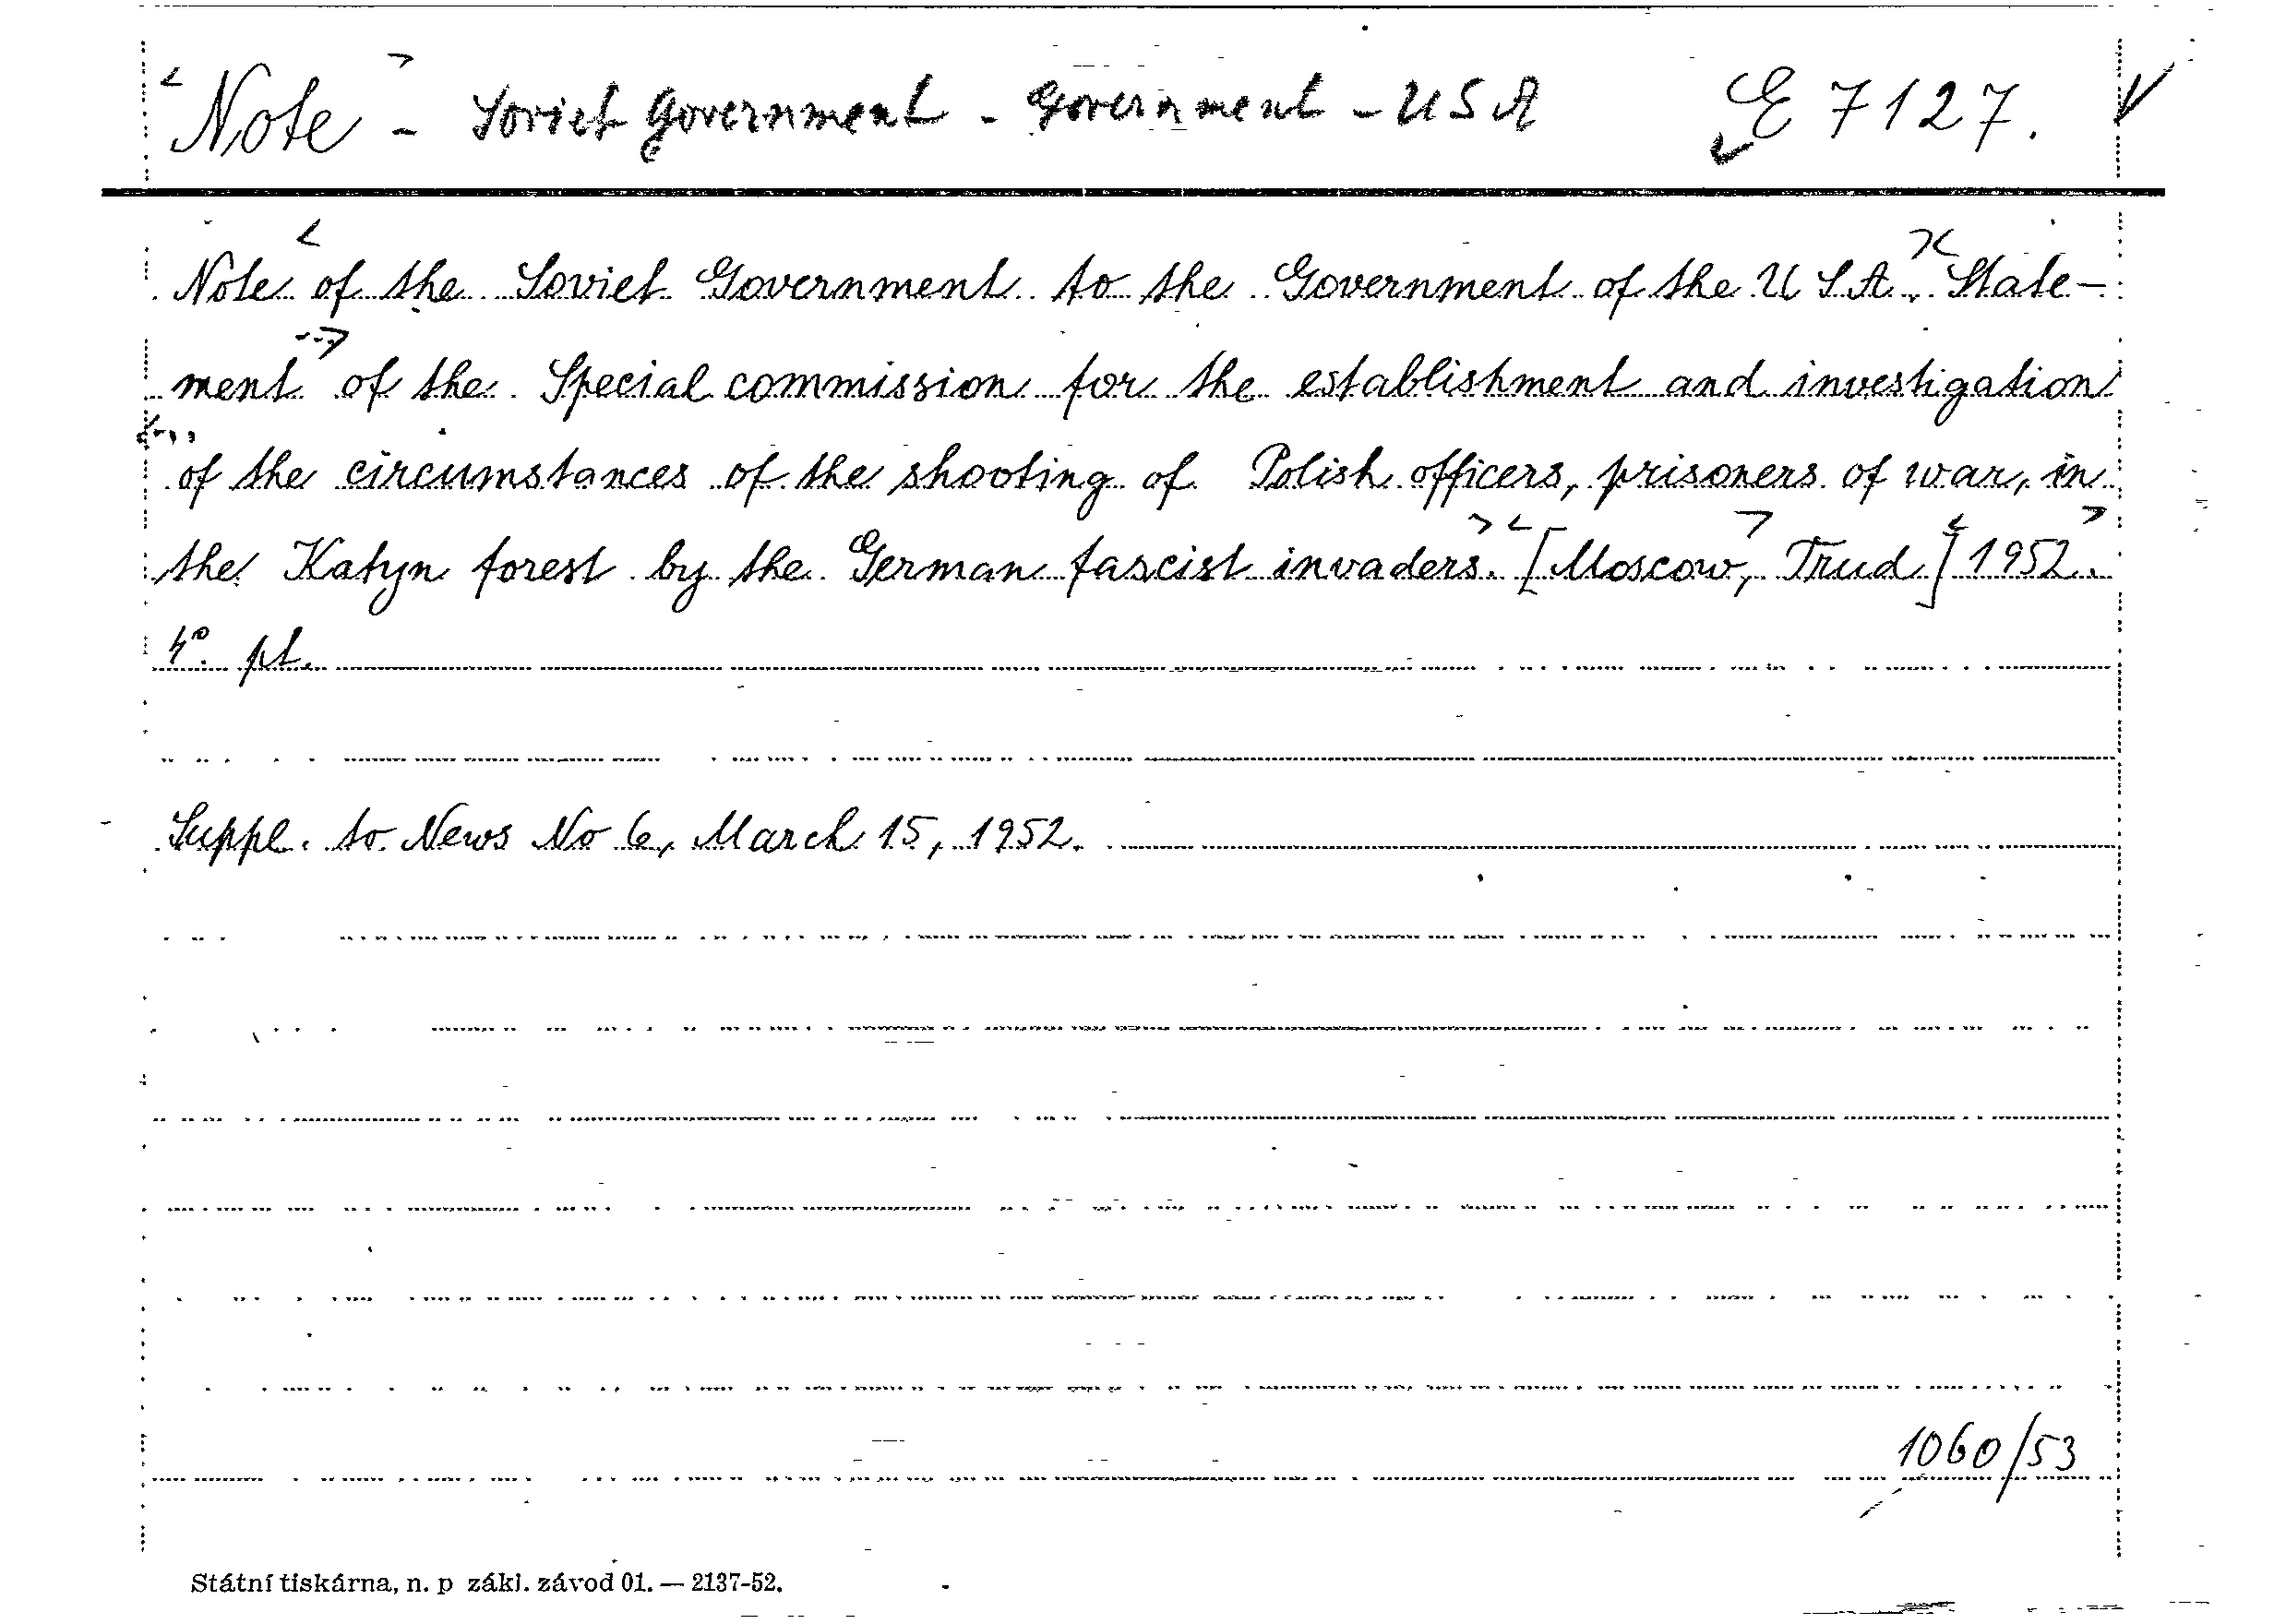 Note - Soviet Government - Government - USA E 7127.
Note of the Soviet Government to the Government of the U S.A. State-
ment of the Special commission for the establishment and investigation
of the circumstances of the shooting of Polish officers, prisoners of war, in
the Katyn forest by the German fascist invaders. [Moscow, Trud] 1952.
4°. pt.
Suppl. to News No 6, March 15, 1952.
1060/53
Státní tiskárna, n. p zákl. závod 01. — 2137-52.